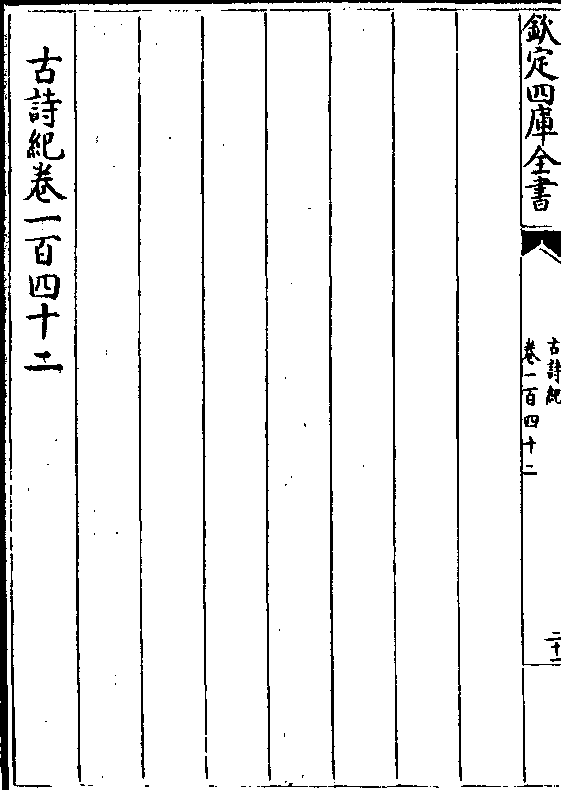 欽定四庫全書
古詩紀
卷一百四十二
二十一
古詩紀卷一百四十二